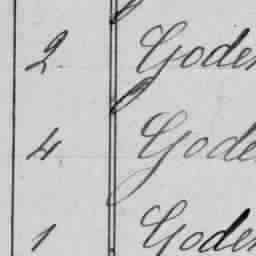 2. Goden
4 Gode
1 Goden